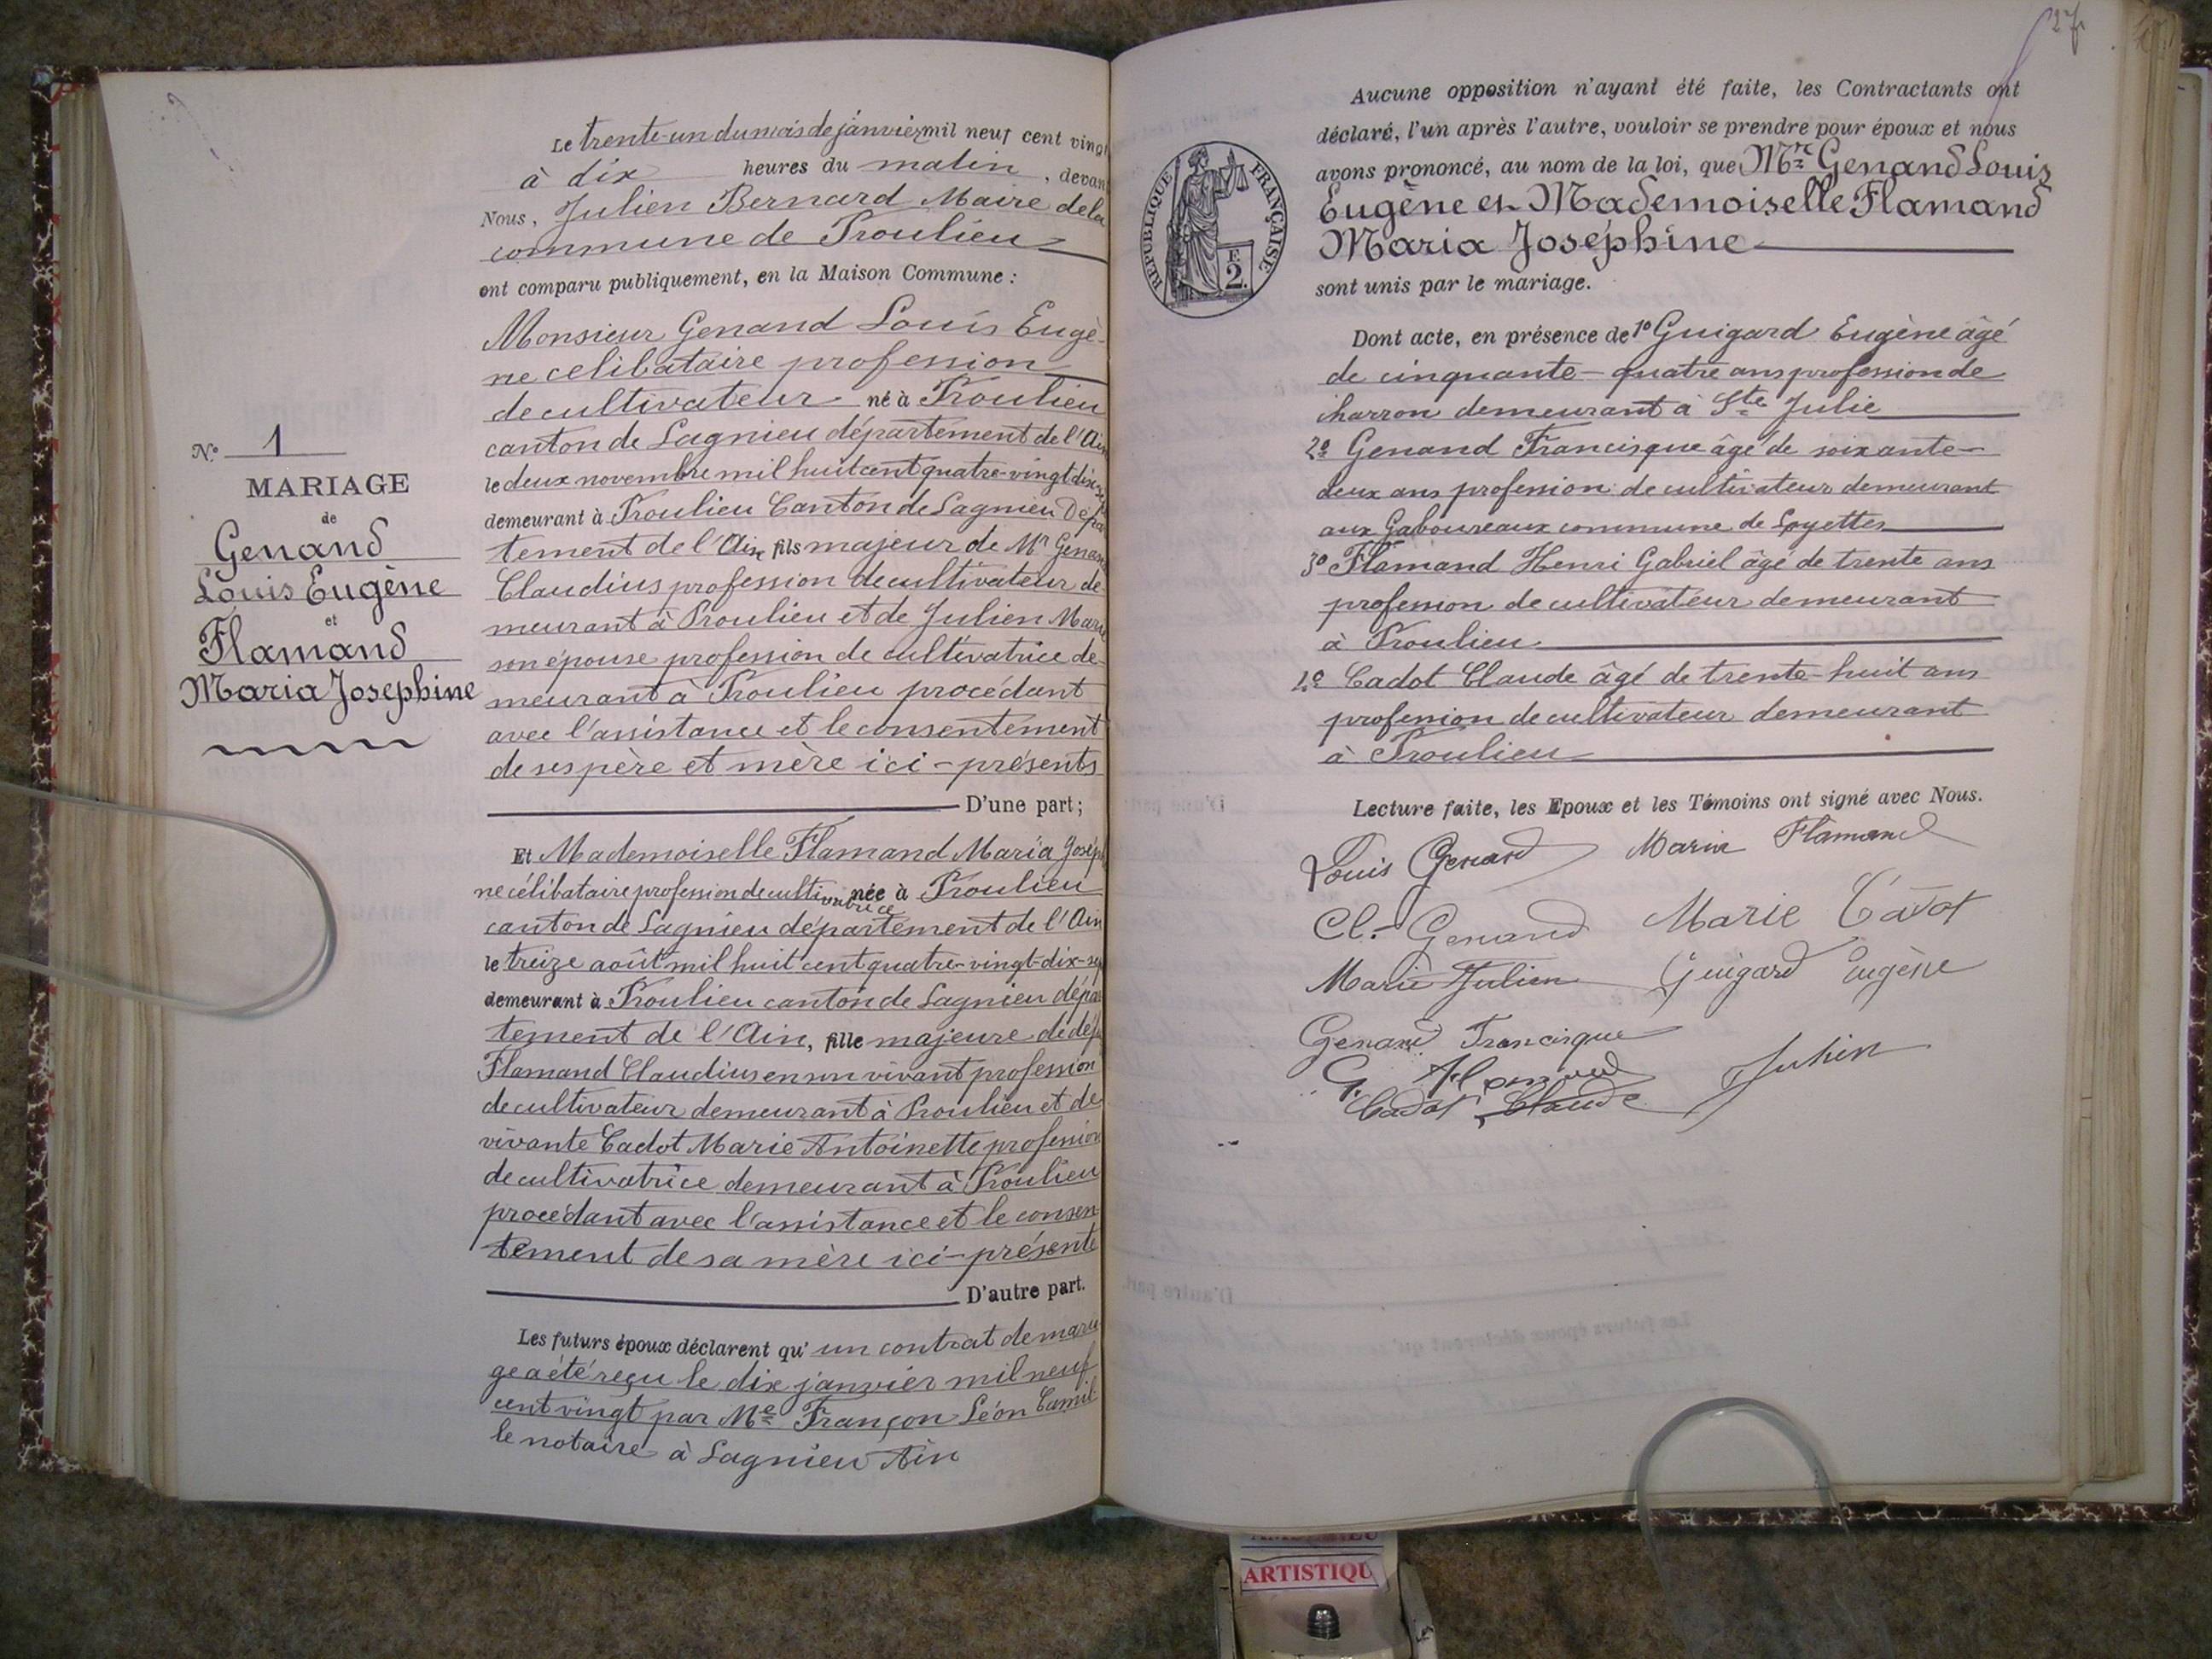 Le trente-un du mois de janvier mil neuf cent vingt
à dix heures du matin, devant
Nous, Julien Bernard Maire de la
commune de Proulieu
ont comparu publiquement, en la Maison Commune :
Monsieur Genand Louis Eugè-
ne celibataire profession
de cultivateur né à Proulieu
canton de Lagnieu département de l'Ain
le deux novembre mil huit cent quatre-vingt-dix-se
demeurant à Proulieu Canton de Lagnieu Dépar
tement de l'Ain, fils majeur de Mr Genand
Claudius profession de cultivateur de
meurant à Proulieu et de Julien Marie
son épouse profession de cultivatrice de-
meurant à Proulieu procédant
avec l'assistance et le consentement
de ses père et mère ici-présents
D'une part;
N° 1
MARIAGE
de
Genand
Louis Eugène
et
Flamand
Maria Josephine
Et Mademoiselle Flamand Maria Joséph
ne célibataire profession de cultivatrice née à Proulieu
canton de Lagnieu département de l'Ain
le treize août mil huit cent quatre-vingt-dix-sep
demeurant à Proulieu canton de Lagnieu dépar
tement de l'Ain, fille majeure de déft
Flamand Claudius en son vivant profession
de cultivateur demeurant à Proulieu et de
vivante Cadot Marie Antoinette profession
de cultivatrice demeurant à Proulieu
procédant avec l'assistance et le consen
tement de sa mère ici-présente
D'autre part.
Les futurs époux déclarent qu'un contrat de maria
ge a été reçu le dix janvier mil neuf
cent vingt par Me Françon Léon Camil
le notaire à Lagnieu Ain
27
Aucune opposition n'ayant été faite, les Contractants ont
déclaré, l'un après l'autre, vouloir se prendre pour époux et nous
avons prononcé, au nom de la loi, que Mr Genand Louis
Eugène et Mademoiselle Flamand
Maria Joséphine
sont unis par le mariage.
RÉPUBLIQUE FRANÇAISE
F.
2.
Dont acte, en présence de 1º Guigard Eugène âgé
de cinquante-quatre ans profession de
charron demeurant à Ste Julie
2º Genand Francisque âgé de soixante-
deux ans profession de cultivateur demeurant
aux Gaboureaux commune de Loyettes
3º Flamand Henri Gabriel âgé de trente ans
profession de cultivateur demeurant
à Proulieu
4º Cadot Claude âgé de trente-huit ans
profession de cultivateur demeurant
à Proulieu
Lecture faite, les Epoux et les Témoins ont signé avec Nous.
Louis Genand Maria Flamand
Cl. Genand Marie Cadot
Marie Julien Guigard Eugène
Genand Francisque
G. Flamand Julien
Cadot Claude
ARTISTIQU